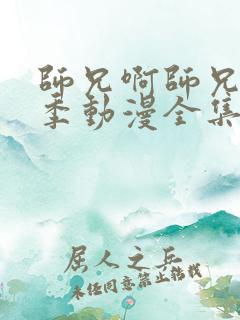 師兄啊師兄
季動漫全集
屈人之兵
未经同意禁止转载